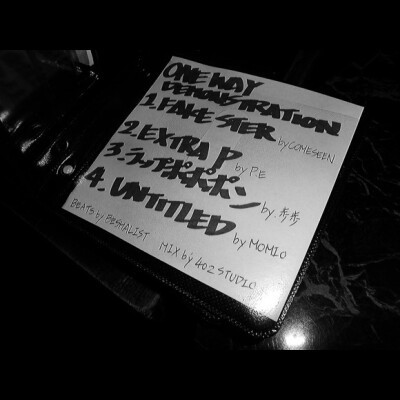 ONE WAY
DEMONSTRATION
1. FAKE STER by COMESEEN
2. EXTRA P by P.E
3. ラップポポポン by.
4. UNTITLED by MOMIO
BEATS by BESHALIST MIX by 402 STUDIO